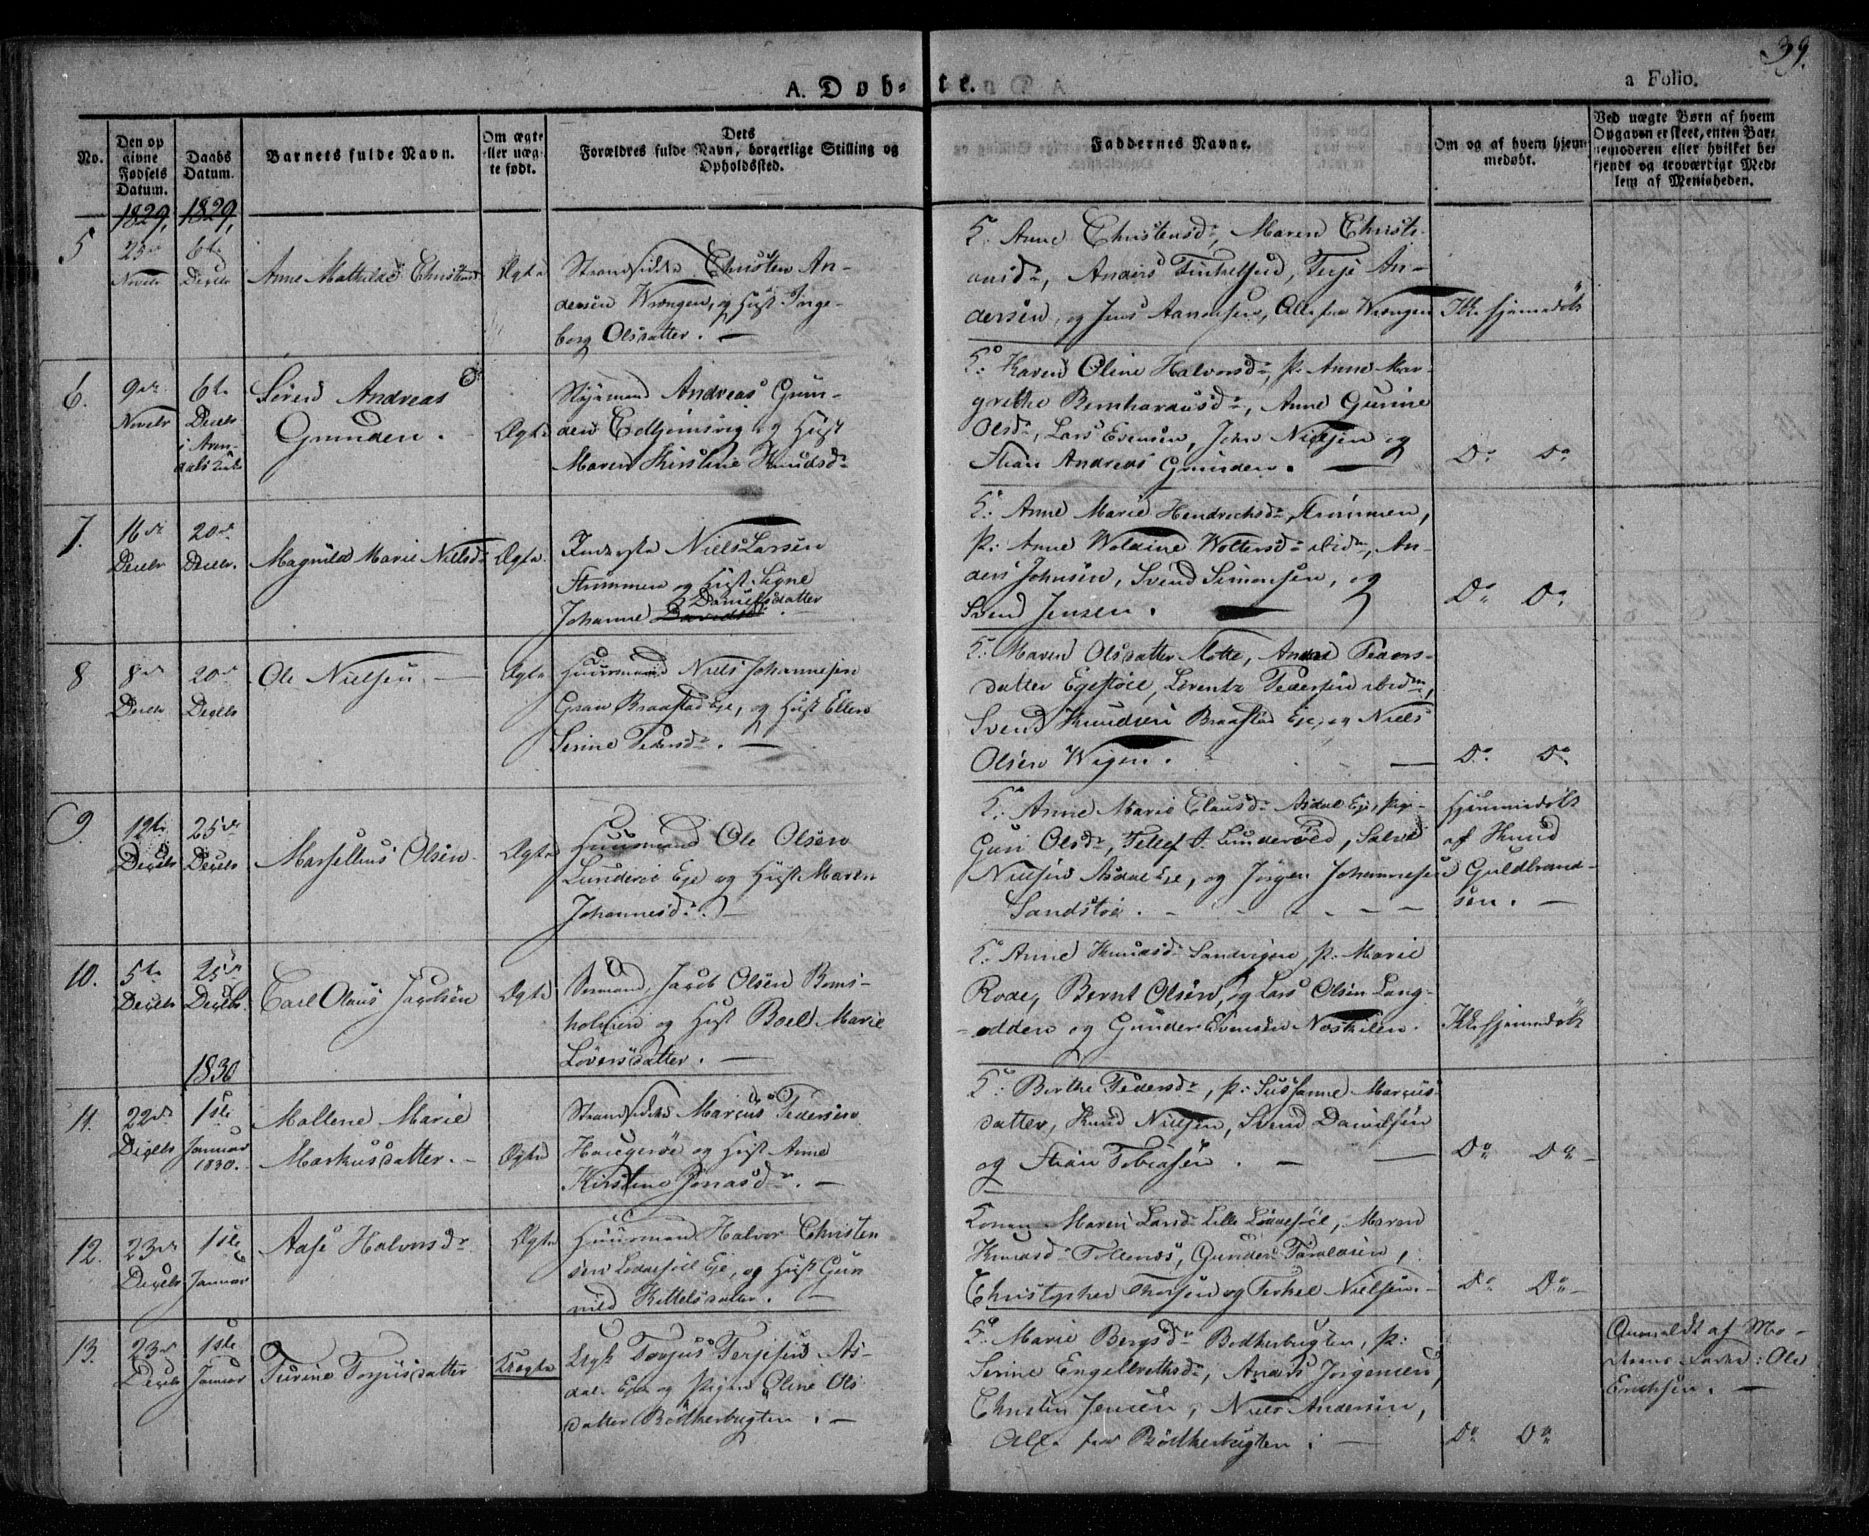 39.
A. Døb-te.
a Folio.
No.
Den op
givne
Fødsels
Datum.
Daabs
Datum.
Barnets fulde Navn.
Om ægte
eller uæg-
te født.
Dets
Forældres fulde Navn, borgerlige Stilling og
Opholdssted.
Faddernes Navne.
Om og af hvem hjem-
medøbt.
Ved uægte Børn af hvem
Opgaven er skeet, enten Bar-
nemoderen eller hvilket be-
kjendt og troværdigt Med-
lem af Menigheden.
1829,
1829,
5
23de
Novebr
6te
Decebr
Anne Mathilde Christensd
Ægte
Strandsidder Christen An-
dersen Wrængen, og Hust Inge-
borg Olsdatter. —
K: Anne Christensdr, Maren Christi-
ansdr, Anders Tinkelfsen, Terje An-
dersen, og Jens Aanonsen, Alle fra Wrængen
Ikke hjemmedøbt
6.
9de
Novebr
6te
Decebr
i Aren-
dals Kirke
Søren Andreas
Grunden.
Ægte
Styrmand Andreas Grun-
den Colbjørnsvig og Hust
Maren Kirstine Knudsdr
K: Karen Oline Halvorsdr, P: Anne Mar-
grethe Bernhardusdr, Anne Gurine
Olsdr, Lars Evensen, John Nielsen og
Stian Andreas Grunden. —
Do Do
7.
16de
Decebr
20de
Decebr.
Magnild Marie Nielsdr
Ægte.
Inderste Niels Larsen
Strømmen og Hust Signe
Johanne Davidsd. Danielsdatter
K: Anne Marie Hendrichsdr, Strømmen,
P: Anne Woldine Woltersdr ibidm, An-
ders Johnsen, Svend Simonsen, og
Svend Jensen. —
Do Do.
8
8de
Decebr
20de
Decebr
Ole Nielsen. —
Ægte
Huusmand Niels Johannesen
Graae Braastad Eje, og Hust Ellen
Serine Pedersdr. —
K: Maren Olsdatter Slotte, Anne Peders-
datter Egestøe, Lorentz Pedersen ibidm,
Svend Knudsen Braastad Eje, og Niels
Olsen Wigen. —
Do. Do.
9.
12te
Decebr
25de
Decebr
Marsellius Olsen.
Ægte
Huusmand Ole Olsen
Lunderöe Eje og Hust Maren
Johannesdr. —
K: Anne Marie Clausdr Asdal Eje, Pige
Guri Olsdr, Tellef A. Lunderöed, Salve
Nielsen Asdal Eje, og Jörgen Johannesen
Sandstöe. — — — — —
Hjemmedøbt
af Knud
Guldbrand-
sen. —
10.
5te
Decebr
25de
Decebr.
Carl Olaus Jacobsen
Ægte
Sömand Jacob Olsen Roms-
holmen og Hust Boel Marie
Löversdatter. —
K: Anne Knudsdr Sandvigen, P: Marie
Rode, Bernt Olsen, og Lars Olsen Lang-
odden og Gunder Evensen Næskilen.
Ikke hjemmedøbt
1830
11.
22de
Decebr
1ste
Januar
1830.
Mallene Marie
Markusdatter. —
Ægte
Strandsidder Marcus Pedersen
Haugeröe og Hust Anne
Kirstine Jonasdr. —
K: Berthe Pedersdr, P: Sussanne Marcus-
datter, Knud Nielsen, Svend Danielsen
og Stian Tobiasen. — —
Do Do —
12.
23de
Decebr
1ste
Januar
Aase Halvorsdr
Ægte
Huusmand Halvor Christen
sen Löddesöel Eje, og Hust Gun
nild Kittelsdatter. —
Konen Maren Larsdr Lille Löddesöel, Maren
Knudsdr Tollenæs, Gunder Taraldsen,
Christopher Thorsen og Terkel Nielsen. —
Do Do —
13.
23de
Decebr
1ste
Januar
Turine Torjusdatter
Uægte
Ungk Torjus Terjesen As-
dal Eje og Pigen Oline Ols
datter Bödtkerbugten. —
K: Marie Bergsdr Bödtkerbugten, P:
Serine Engelbrethsdr, Anders Jörgensen,
Christen Jensen, Niels Andersen,
Alle fra Bödtkerbugten. —
Do Do
Anmeldt af Mo-
derens Fader: Ole
Erichsen. —